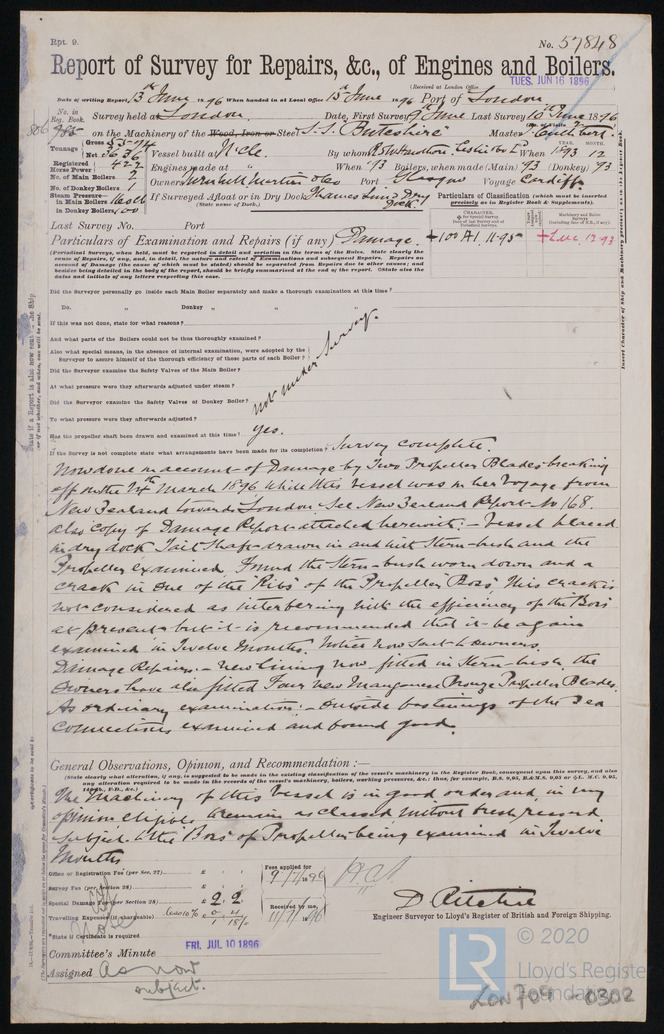 Rpt. 9.
No. 57848
Report of Survey for Repairs, &c., of Engines and Boilers.
(Received at London Office
TUES. JUN 16 1896
Date of writing Report, 13th June 1896 When handed in at Local Office 15th June 1896 Port of London
No. in Reg. Book. Survey held at London Date, First Survey 9th June Last Survey 10th June 1896
on the Machinery of the Wood, Iron or Steel S.S. Buteshire Master Cuthbert
Tonnage Gross 5574
Net 3636
Vessel built at N'cle. By whom When 1893 12
YEAR. MONTH.
Registered Horse Power 422
Engines made at " When '93 Boilers, when made (Main) '93 (Donkey) 93
No. of Main Boilers 2
Owners Turnbull Martin & Co Port Glasgow Voyage Cardiff
No. of Donkey Boilers 1
Steam Pressure in Main Boilers 160
in Donkey Boilers 100
If Surveyed Afloat or in Dry Dock Thames Dry Dock
(State name of Dock.)
Particulars of Classification (which must be inserted precisely as in Register Book & Supplements).
Last Survey No. Port
CHARACTER.
Particulars of Examination and Repairs (if any) Damage.
+100 A1 11.95
+LMC 12.93
(Periodical Surveys, when held, must be reported in detail and seriatim in the terms of the Rules.
Did the Surveyor personally go inside each Main Boiler separately and make a thorough examination at this time?
Do. " Donkey " "
If this was not done, state for what reasons?
And what parts of the Boilers could not be thus thoroughly examined?
Also what special means, in the absence of internal examination, were adopted by the
Surveyor to assure himself of the thorough efficiency of those parts of each Boiler?
Did the Surveyor examine the Safety Valves of the Main Boiler?
At what pressure were they afterwards adjusted under steam?
Did the Surveyor examine the Safety Valves of Donkey Boiler?
To what pressure were they afterwards adjusted?
not under Survey.
Has the propeller shaft been drawn and examined at this time? yes.
If the Survey is not complete state what arrangements have been made for its completion? Survey complete.
Now done on account of Damage by Two Propeller Blades breaking
off on the March 1896 while this vessel was on her Voyage from
New Zealand towards London See New Zealand Report No 168.
also copy of Damage Report attached herewith:- Vessel placed
in dry dock Tail Shaft drawn in and with Stern-bush and the
Propeller examined. Found the Stern-bush worn down and a
crack in one of the Ribs of the Propeller Boss, this crack is
not considered as interfering with the efficiency of the Boss
at present but it is recommended that it be again
examined in Twelve Months. Notice now sent to Owners.
Damage Repairs:- New lining now fitted in Stern-bush, the
Owners have also fitted Four new Manganese Bronze Propeller Blades.
As ordinary examination:- Outside fastenings of the Sea
Connections examined and found good.
General Observations, Opinion, and Recommendation:—
(State clearly what alteration, if any, is suggested to be made in the existing classification of the vessel's machinery in the Register Book, consequent upon this survey, and also
any alteration required to be made in the records of the vessel's machinery, boilers, working pressures, &c.
The Machinery of this Vessel is in good order and in my
opinion eligible to remain as classed without fresh record
subject to the Boss of Propeller being examined in Twelve
Months
Office or Registration Fee (per Sec. 27) £ : :
Survey Fee (per Section 28) £ : :
Special Damage Fee (per Section 28) £ 2 : 2
Travelling Expenses (if chargeable) less 10% £ 0 4
Fees applied for
9/7/1896
Received by me,
11/7/1896
D Ritchie
Engineer Surveyor to Lloyd's Register of British and Foreign Shipping.
State if Certificate is required
FRI. JUL 10 1896
Committee's Minute
Assigned As now
subject.
LR
© 2020
Lloyd's Register
Foundation
LON709 - 0302